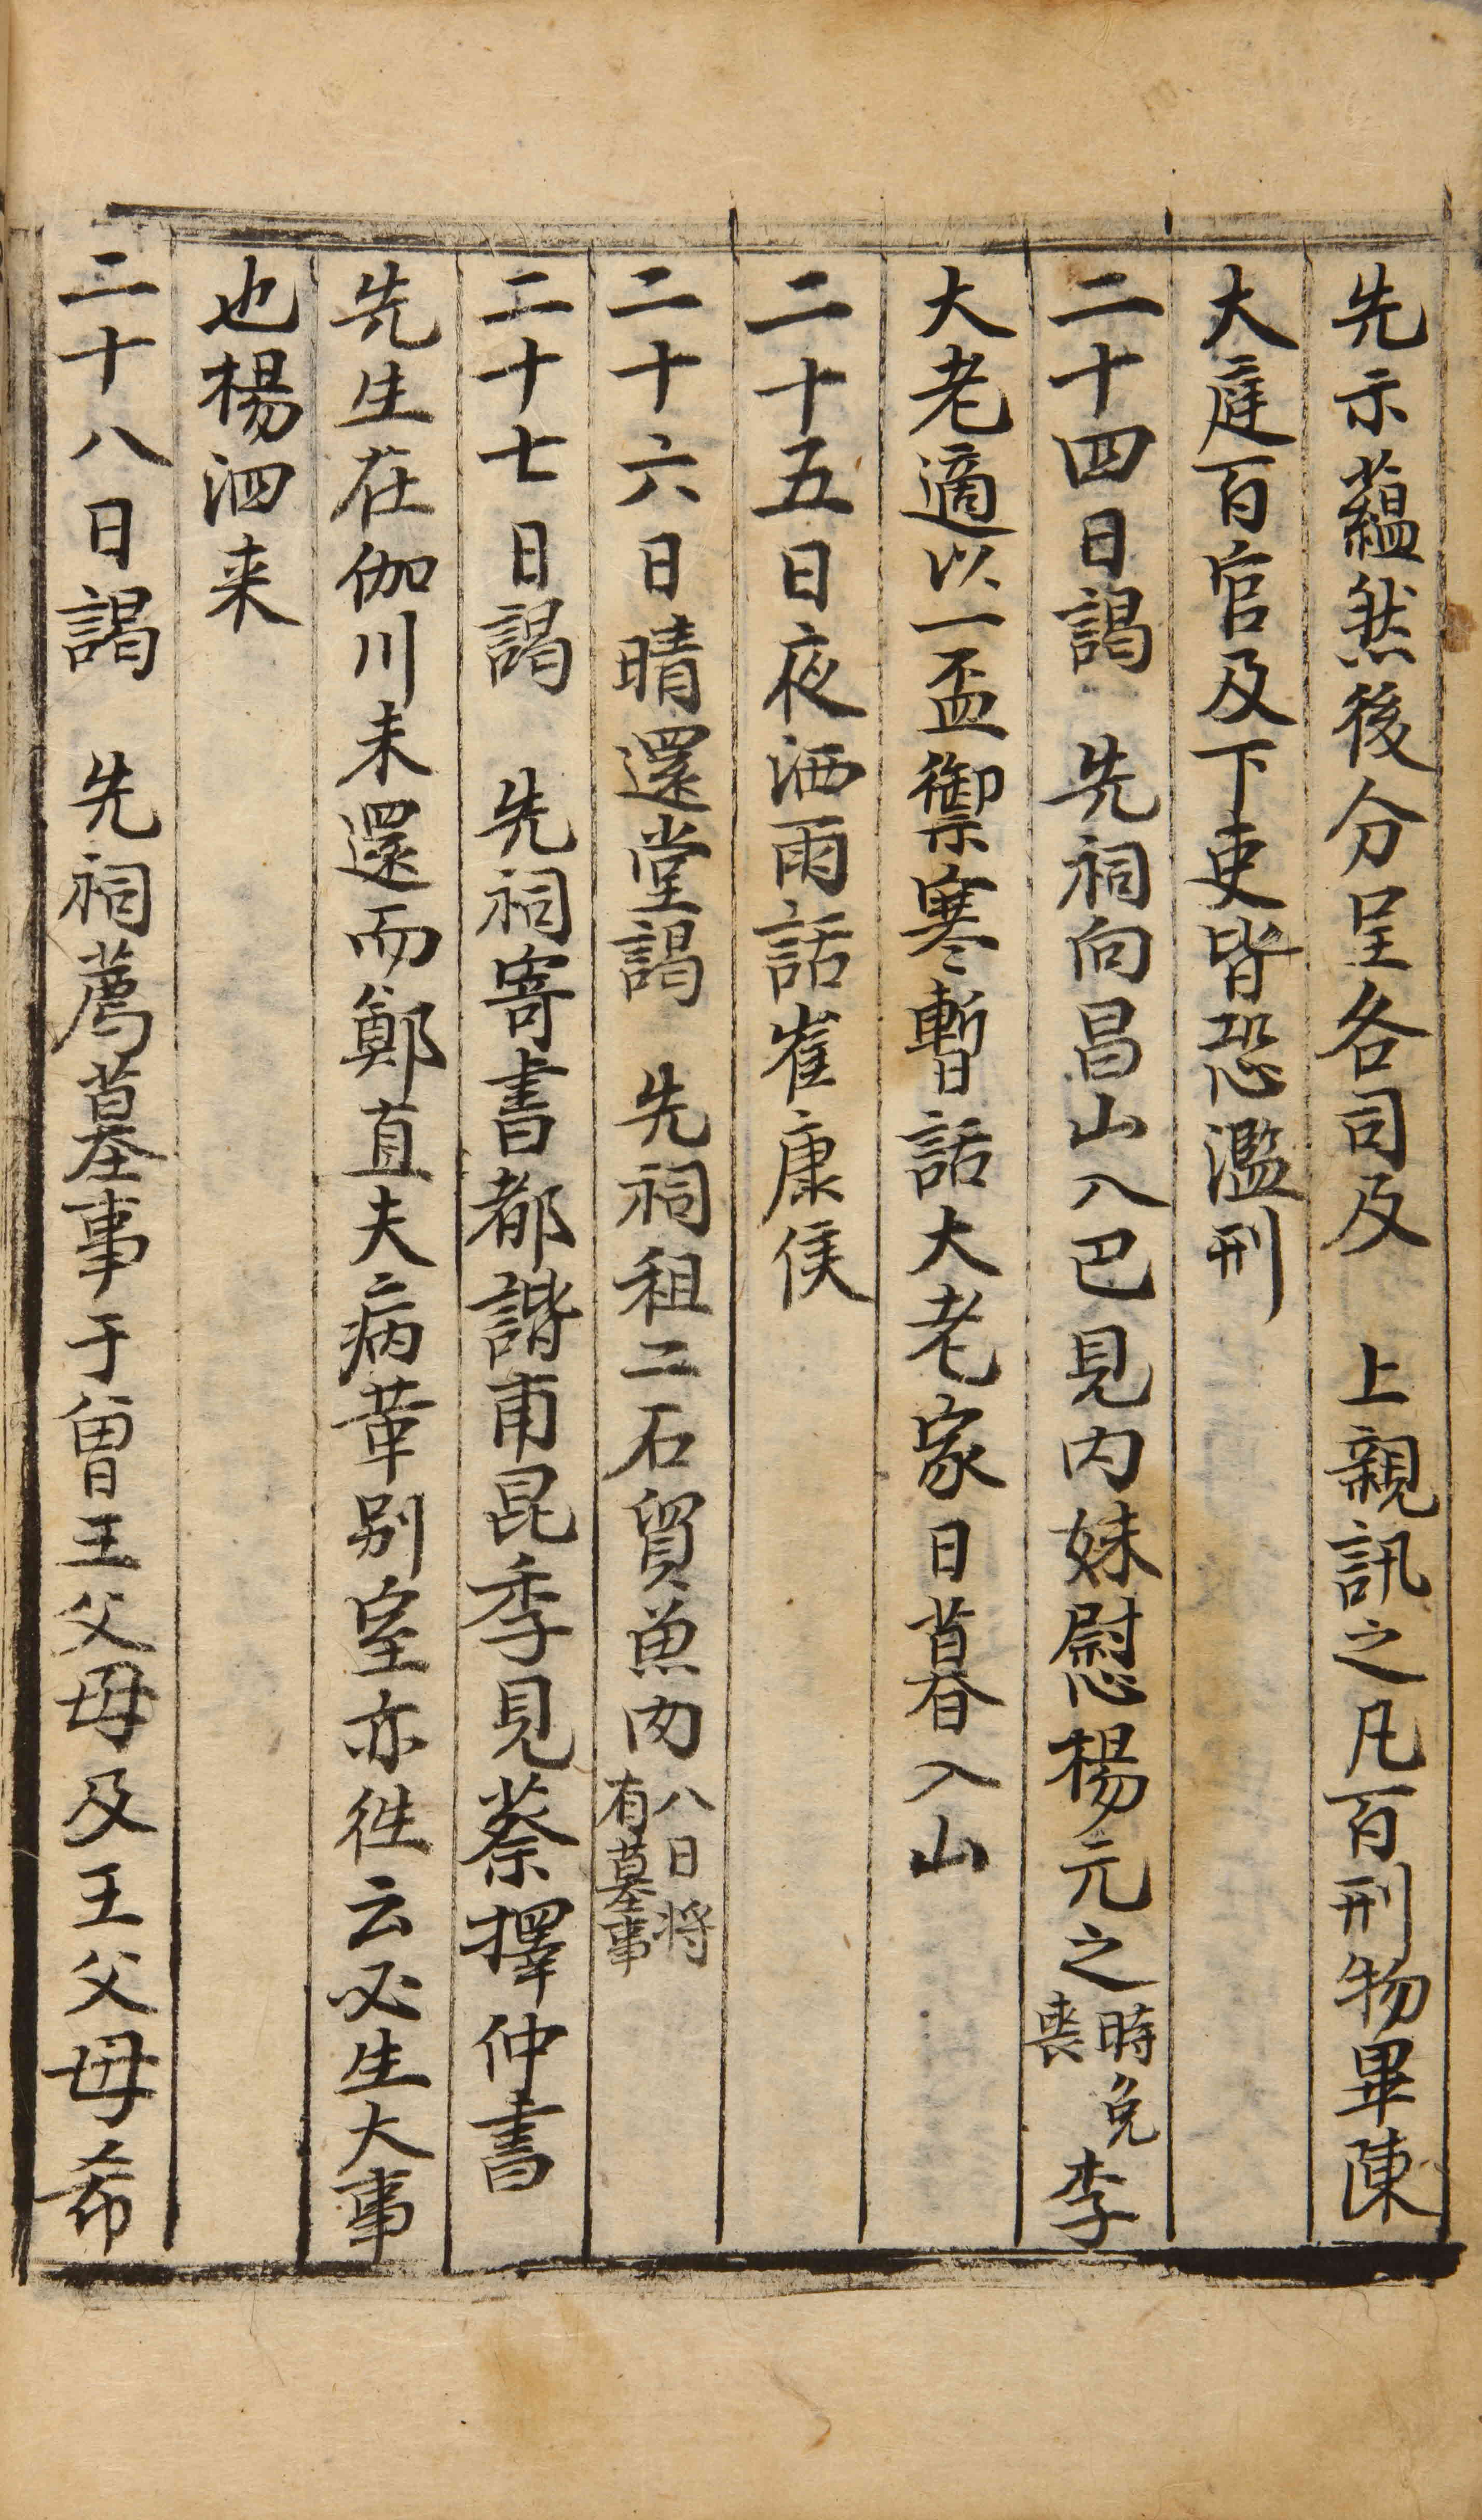 先示蘊然後分呈各司及　上親訊之凡百刑物畢陳
大庭百官及下吏皆恐濫刑
二十四日謁　先祠向昌山入巴見內妹慰楊元之時免喪李
大老適以一盃禦寒暫話大老家日暮入山
二十五日夜洒雨話崔康侯
二十六日晴還堂謁　先祠租二石貿魚肉八日將有墓事
二十七日謁　先祠寄書都諧甫昆季見蔡擇仲書
先生在伽川未還而鄭直夫病革別室亦徃云必生大事
也楊泗来
二十八日謁　先祠薦墓事于曾王父母及王父母希